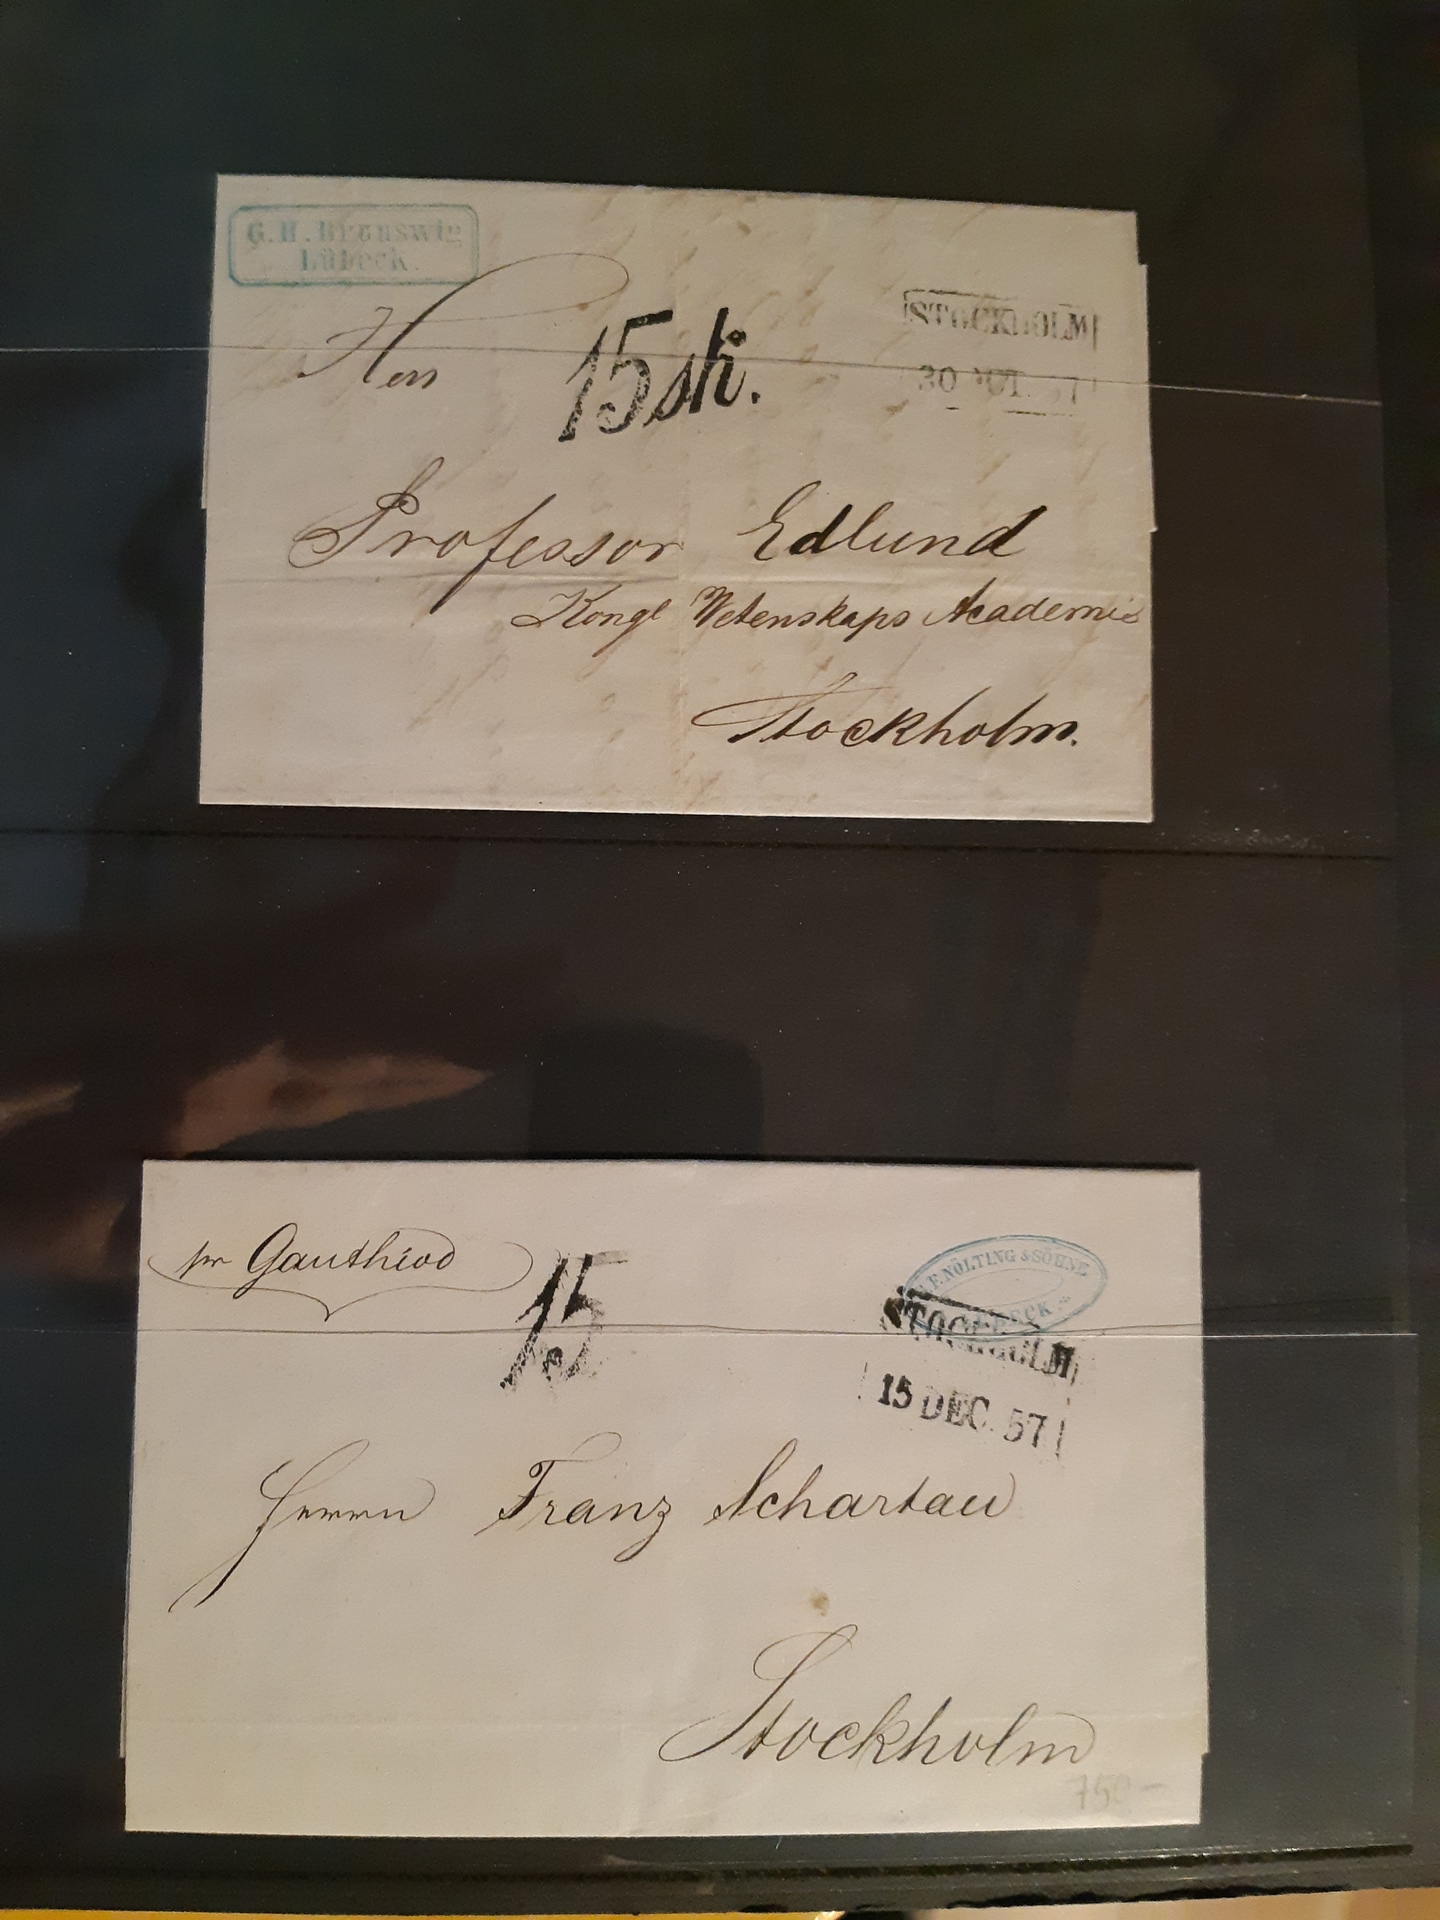 G. H. Brunswig
Lübeck.
Herr
15 sk.
STOCKHOLM
30 57
Professor Edlund
Kongl Vetenskaps Academie
Stockholm.
pr Gauthiod
15
F. NÖLTING & SÖHNE
LÜBECK
STOCKHOLM
15 DEC. 57
Herrn Franz Schartau
Stockholm
750-